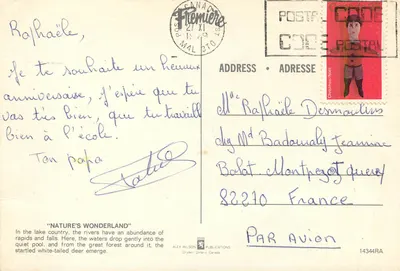 Raphaële,
Je te souhaite un heureux
anniversaire, j'espère que tu
vas très bien, que tu travailles
bien à l'école.
Ton papa
"NATURE'S WONDERLAND"
In the lake country, the rivers have an abundance of
rapids and falls. Here, the waters drop gently into the
quiet pool, and from the great forest around it, the
startled white-tailed deer emerge.
Première
CANADA
M4L 2T0
POSTAL
CODE
CODE
POSTAL
ADDRESS • ADRESSE
Mle Raphaële Desmoulins
chez Md Jeannine
82270
France
PAR AVION
14344RA